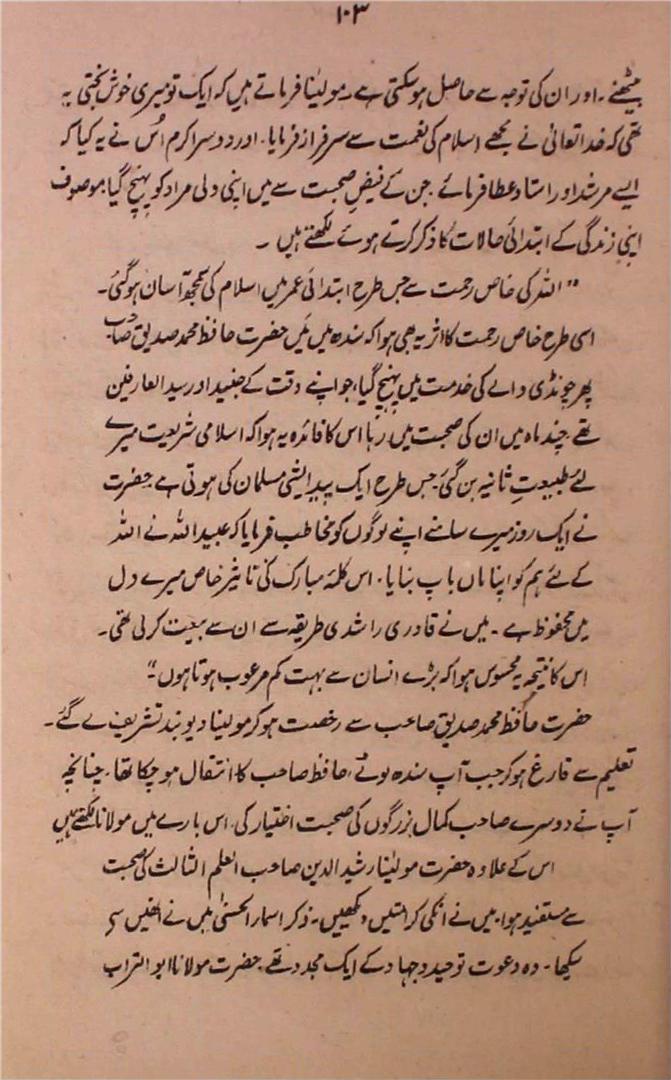 ۱۰۳
بیٹھنے۔ اور ان کی توجہ سے حاصل ہوسکتی ہے۔ مولینا فرماتے ہیں کہ ایک تو میری خوش بختی یہ
تھی کہ خدا تعالیٰ نے مجھے اسلام کی نعمت سے سرفراز فرمایا۔ اور دوسرا کرم اُس نے یہ کیا کہ
ایسے مرشد اور استاد عطا فرمائے جن کے فیضِ صحبت سے میں اپنی دلی مراد کو پہنچ گیا۔ موصوف
اپنی زندگی کے ابتدائی حالات کا ذکر کرتے ہوئے لکھتے ہیں ۔
" اللہ کی خاص رحمت سے جس طرح ابتدائی عمر میں اسلام کی سمجھ آسان ہوگئی۔
اسی طرح خاص رحمت کا اثر یہ بھی ہوا کہ سندھ میں میں حضرت حافظ محمد صدیق صاحب
بھرچونڈی والے کی خدمت میں پہنچ گیا، جو اپنے وقت کے جنید اور سید العارفین
تھے چند ماہ میں ان کی صحبت میں رہا اس کا فائدہ یہ ہوا کہ اسلامی شریعت میرے
لئے طبیعتِ ثانیہ بن گئی جس طرح ایک پیدائشی مسلمان کی ہوتی ہے حضرت
نے ایک روز میرے سامنے اپنے لوگوں کو مخاطب فرمایا کہ عبید اللہ نے اللہ
کے لئے ہم کو اپنا ماں باپ بنایا۔ اس کلمۂ مبارک کی تاثیر خاص میرے دل
میں محفوظ ہے ۔ میں نے قادری راشدی طریقہ سے ان سے بیعت کر لی تھی۔
اس کا نتیجہ یہ محسوس ہوا کہ بڑے انسان سے بہت کم مرعوب ہوتا ہوں"
حضرت حافظ محمد صدیق صاحب سے رخصت ہوکر مولینا دیوبند تشریف لے گئے۔
تعلیم سے فارغ ہوکر جب آپ سندھ لوٹے، حافظ صاحب کا انتقال ہو چکا تھا۔ چنانچہ
آپ نے دوسرے صاحب کمال بزرگوں کی صحبت اختیار کی۔ اس بارے میں مولانا لکھتے ہیں
اس کے علاوہ حضرت مولینا رشید الدین صاحب العلم الثالث کی صحبت
سے مستفید ہوا۔ میں نے انکی کرامتیں دیکھیں۔ ذکر اسماء الحسنیٰ میں نے انھیں سے
سیکھا۔ وہ دعوت توحید و جہاد کے ایک مجدد تھے۔ حضرت مولانا ابو التراب